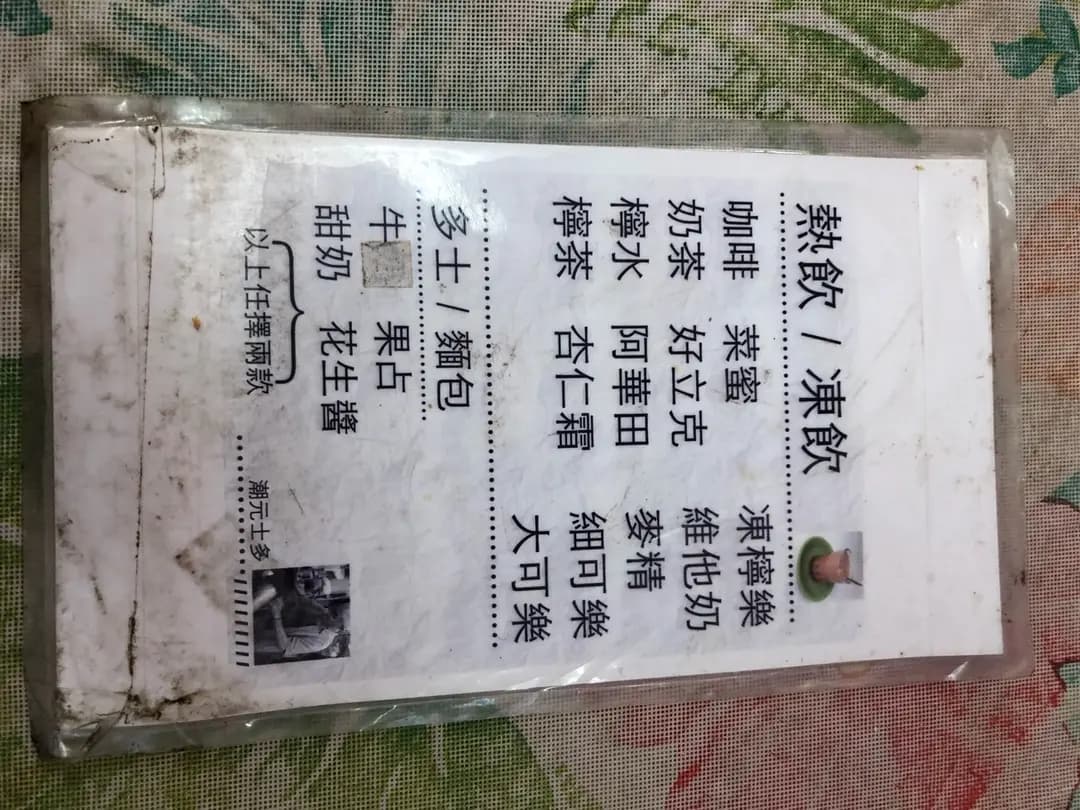 熱飲 / 凍飲
咖啡 菜蜜 凍檸樂
奶茶 好立克 維他奶
檸水 阿華田 麥精
檸茶 杏仁霜 細可樂
大可樂
多士 / 麵包
牛 果占
甜奶 花生醬
以上任擇兩款
潮元士多